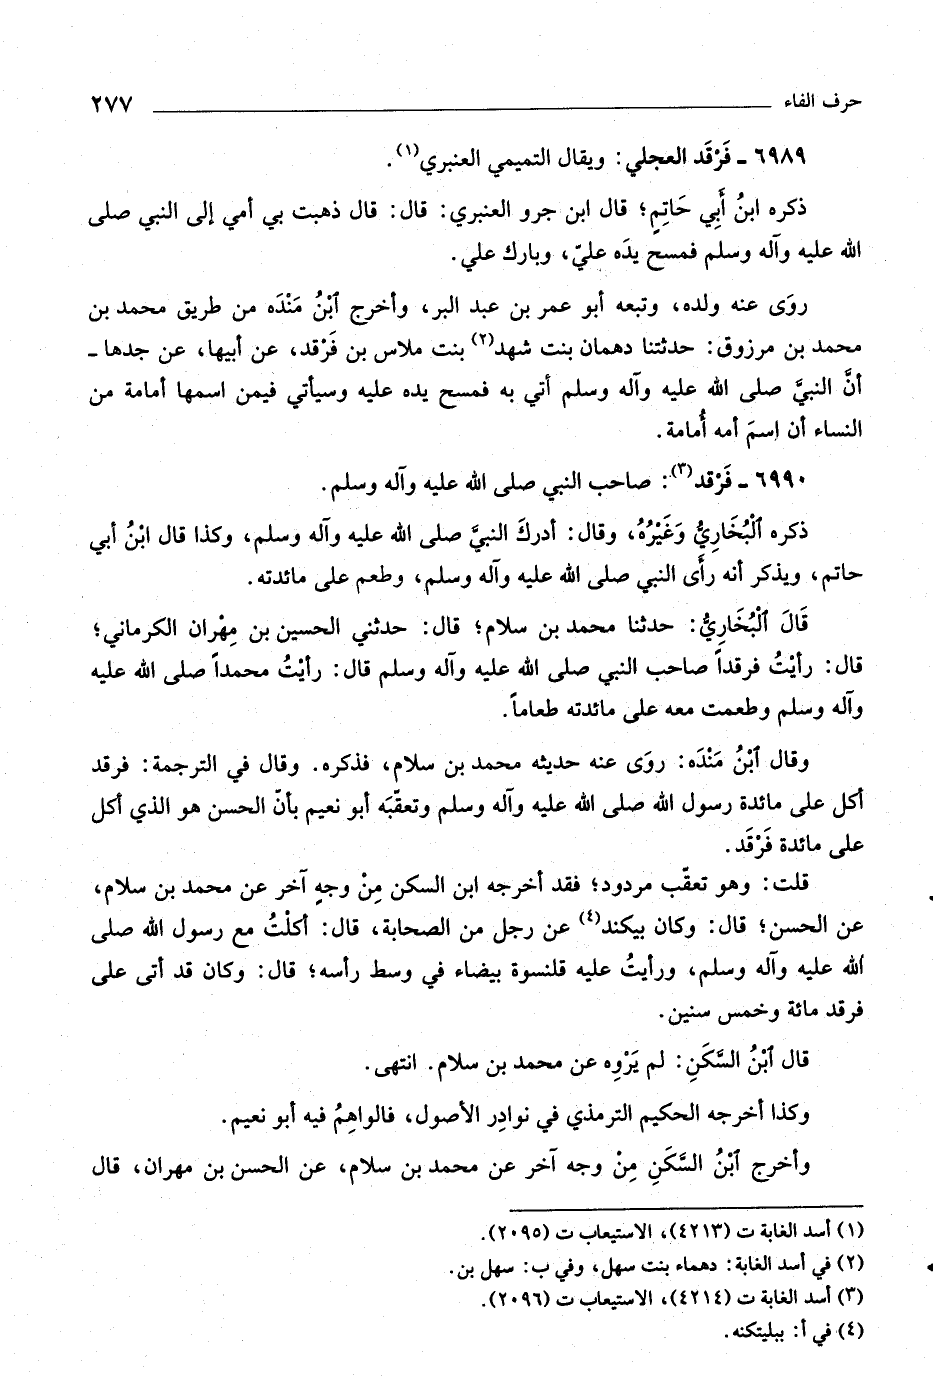 حرف الفاء ٢٧٧
٦٩٨٩ ـ فَرْقَد العجلي: ويقال التميمي العنبري(١).
ذكره ابنُ أَبِي حَاتِمٍ؛ قال ابن جرو العنبري: قال: قال ذهبت بي أمي إلى النبي صلى
الله عليه وآله وسلم فمسح يدَه عليّ، وبارك علي.
روَى عنه ولده، وتبعه أبو عمر بن عبد البر، وأخرج ٱبْنُ مَنْدَه من طريق محمد بن
محمد بن مرزوق: حدثتنا دهمان بنت شهد(٢) بنت ملاس بن فَرْقد، عن أبيها، عن جدها ـ
أنَّ النبيَّ صلى الله عليه وآله وسلم أتي به فمسح يده عليه وسيأتي فيمن اسمها أمامة من
النساء أن اسمَ أمه أُمامة.
٦٩٩٠ ـ فَرْقد(٣): صاحب النبي صلى الله عليه وآله وسلم.
ذكره ٱلْبُخَارِيُّ وَغَيْرُهُ، وقال: أدركَ النبيَّ صلى الله عليه وآله وسلم، وكذا قال ابْنُ أبي
حاتم، ويذكر أنه رأَى النبي صلى الله عليه وآله وسلم، وطعم على مائدته.
قَالَ ٱلْبُخَارِيُّ: حدثنا محمد بن سلام؛ قال: حدثني الحسين بن مِهْران الكرماني؛
قال: رأيْتُ فرقداً صاحب النبي صلى الله عليه وآله وسلم قال: رأيْتُ محمداً صلى الله عليه
وآله وسلم وطعمت معه على مائدته طعاماً.
وقال ٱبْنُ مَنْدَه: روَى عنه حديثه محمد بن سلام، فذكره. وقال في الترجمة: فرقد
أكل على مائدة رسول الله صلى الله عليه وآله وسلم وتعقّبَه أبو نعيم بأنّ الحسن هو الذي أكل
على مائدة فَرْقَد.
قلت: وهو تعقّب مردود؛ فقد أخرجه ابن السكن مِنْ وجهٍ آخر عن محمد بن سلام،
عن الحسن؛ قال: وكان بيكند(٤) عن رجل من الصحابة، قال: أكلْتُ مع رسول الله صلى
الله عليه وآله وسلم، ورأيتُ عليه قلنسوة بيضاء في وسط رأسه؛ قال: وكان قد أتى على
فرقد مائة وخمس سنين.
قال ٱبْنُ السَّكَنِ: لم يَرْوِه عن محمد بن سلام. انتهى.
وكذا أخرجه الحكيم الترمذي في نوادِر الأصول، فالواهِمُ فيه أبو نعيم.
وأخرج ٱبْنُ السَّكَنِ مِنْ وجه آخر عن محمد بن سلام، عن الحسن بن مهران، قال
(١) أسد الغابة ت (٤٢١٣)، الاستيعاب ت (٢٠٩٥).
(٢) في أسد الغابة: دهماء بنت سهل، وفي ب: سهل بن.
(٣) أسد الغابة ت (٤٢١٤)، الاستيعاب ت (٢٠٩٦).
(٤) في أ: ببليتكنه.